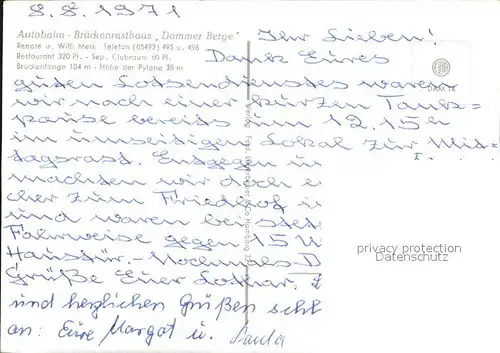 8.8.1971
Autobahn - Brückenrasthaus „Dammer Berge"
Renate u. Willi Merk Telefon (05493) 495 u. 496
Restaurant 320 Pl. - Sep. Clubraum 60 Pl.
Brückenlänge 104 m - Höhe der Pylone 38 m
Ihr Lieben!
Dank Eures
guten Lotsendienstes waren
wir nach einer kurzen Tank=
pause bereits um 12.15 h
im umseitigen Lokal zur Mit=
tagsrast. Entgegen
machten wir doch
cher zum Friedhof
und waren bei
Fahrweise gegen 15 U
Haustür. - Nochmals D
Grüße Euer Lothar.
und herzlichen Grüßen
an: Eure Margot u. Paula
privacy protection
Datenschutz